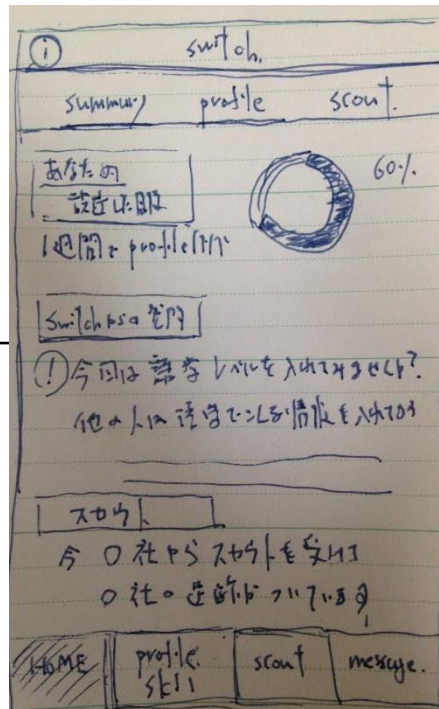 i switch.
summary profile scout.
あなたの 60%
設定した
1週間で profile
Switchからの質問
! 今回は語学レベルを入れてみませんか?
他の人は語学でこんな情報を入れてる
スカウト
今 〇社からスカウトを受けて
〇社の足跡がついている
HOME profile. scout message.
skill